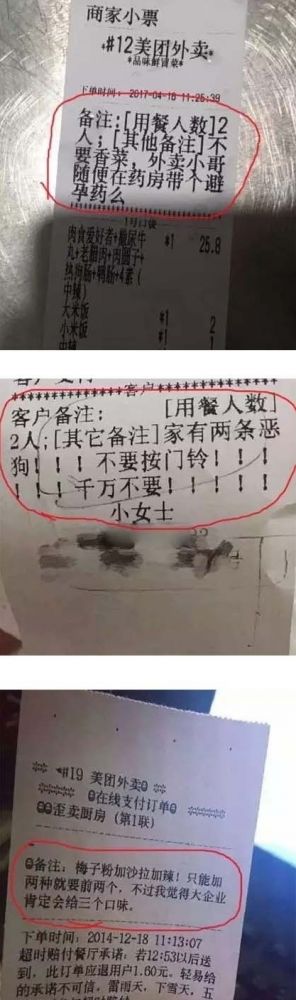 商家小票
#12美团外卖
*品味鲜冒菜*
下单时间: 2017-04-18 11:25:39
备注:[用餐人数]2
人;[其他备注]不
要香菜，外卖小哥
随便在药房带个避
孕药么
1号口袋
肉食爱好者+撒尿牛 *1 25.8
丸+老腊肉+肉圆子+
中辣)
大米饭 *1 2
小米饭 *1 1
中辣
客户
客户备注: [用餐人数]
2人;[其它备注]家有两条恶
狗！！！不要按门铃！！！
！！！千万不要！！！！！
小女士
#19 美团外卖
在线支付订单
歪卖厨房 (第1联)
备注: 梅子粉加沙拉加辣！只能加
两种就要前两个，不过我觉得大企业
肯定会给三个口味。
下单时间: 2014-12-18 11:13:07
超时赔付餐厅承诺: 若12:53以后送
到，此订单应退用户1.60元。轻易给
的承诺不可信，雷雨天、下雪天，五